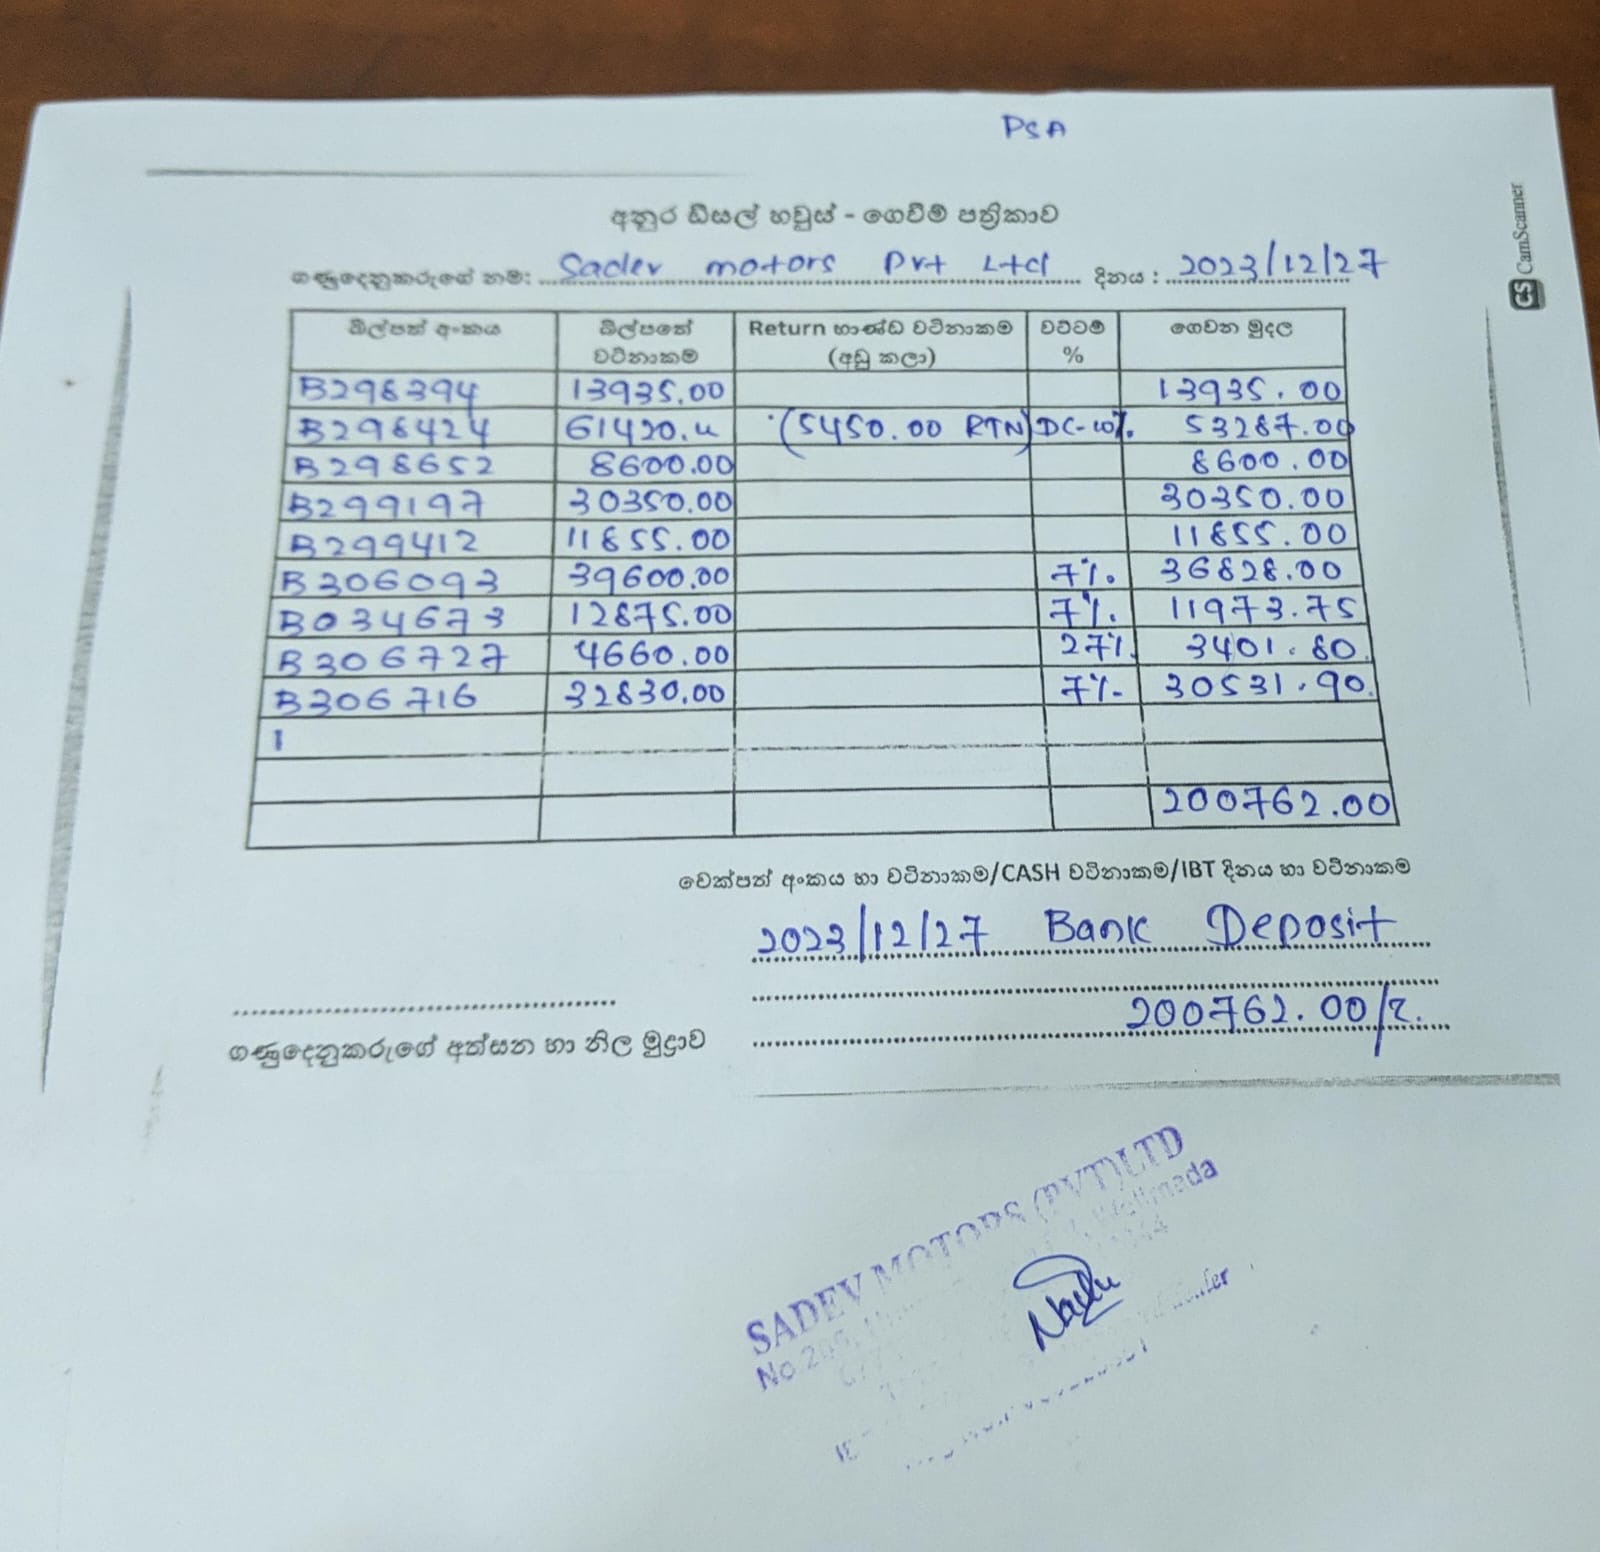 PSA
අනුර ඩීසල් හවුස් - ගෙවීම් පත්‍රිකාව
ගණුදෙනුකරුගේ නම: Sadev motors Pvt Ltd දිනය : 2023/12/27
බිල්පත් අංකය බිල්පතේ වටිනාකම Return භාණ්ඩ වටිනාකම (අඩු කලා) වට්ටම් % ගෙවන මුදල
B298394 13935.00 13935.00
B298424 61420.u (5450.00 RTN) DC-10%. 53287.00
B298652 8600.00 8600.00
B299197 30350.00 30350.00
B299412 11855.00 11855.00
B306093 39600.00 7%. 36828.00
B034673 12875.00 7%. 11973.75
B306727 4660.00 27%. 3401.80.
B306716 32830.00 7%- 30531.90.
1
200762.00
චෙක්පත් අංකය හා වටිනාකම/CASH වටිනාකම/IBT දිනය හා වටිනාකම
2023/12/27 Bank Deposit
200762.00/
ගණුදෙනුකරුගේ අත්සන හා නිල මුද්‍රාව
SADEV MOTORS (PVT)LTD
No Welimada
CS CamScanner